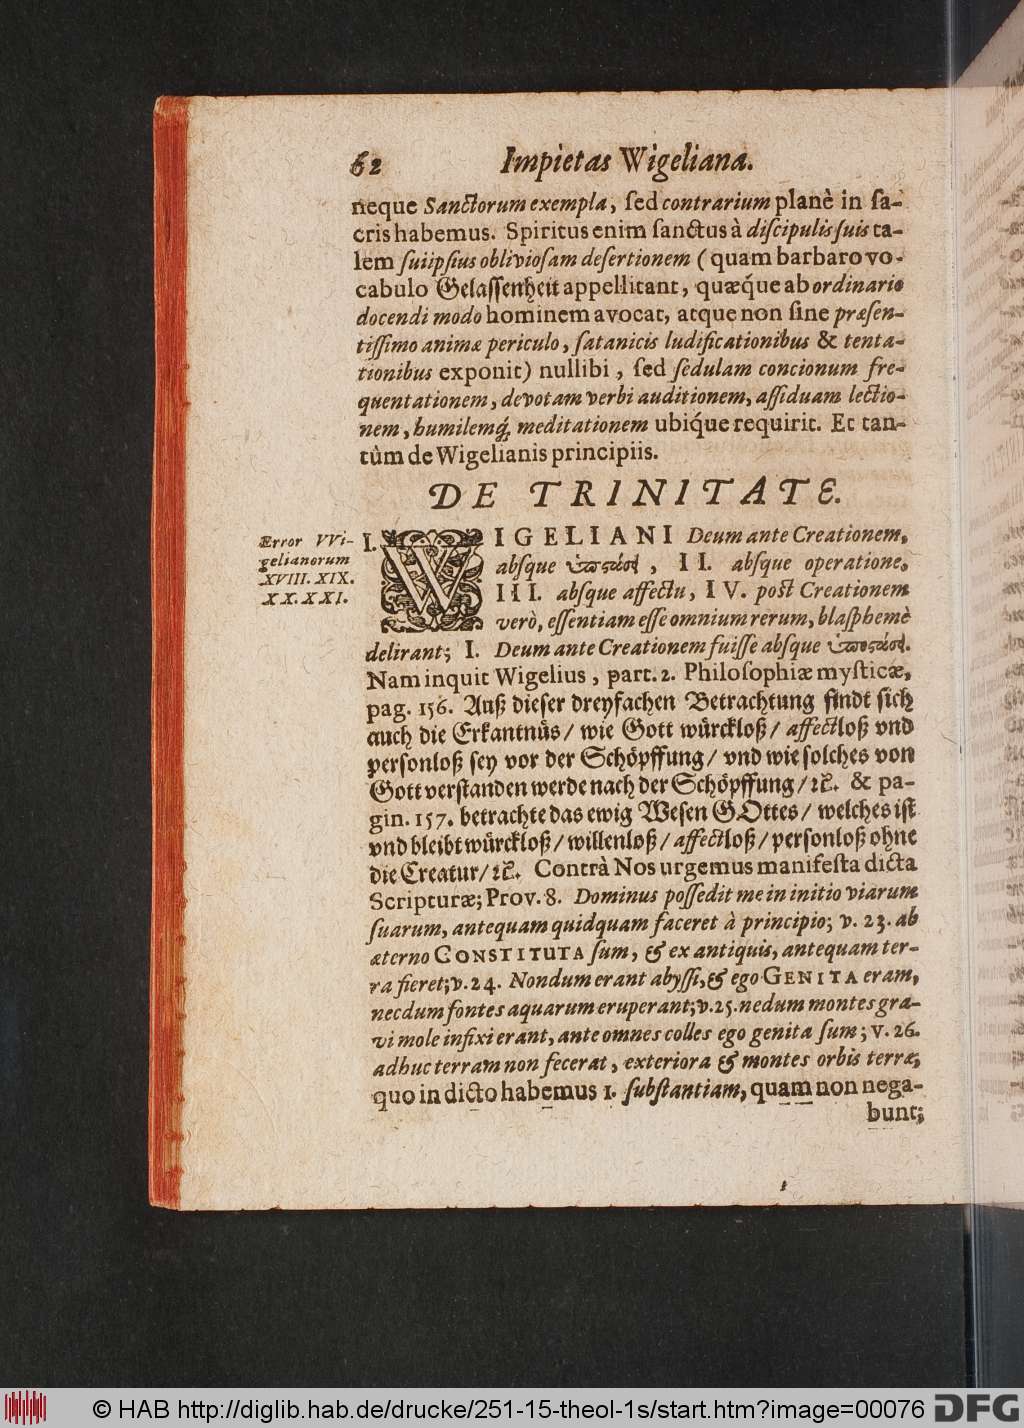 62 Impietas Wigeliana.
neque Sanctorum exempla, sed contrarium planè in sa-
cris habemus. Spiritus enim sanctus à discipulis suis ta-
lem suiipsius obliviosam desertionem (quam barbaro vo-
cabulo Gelassenheit appellitant, quæq́ue ab ordinario
docendi modo hominem avocat, atque non sine præsen-
tissimo animæ periculo, satanicis ludificationibus & tenta-
tionibus exponit) nullibi, sed sedulam concionum fre-
quentationem, devotam verbi auditionem, assiduam lectio-
nem, humilemq́; meditationem ubiq́ue requirit. Et tan-
tùm de Wigelianis principiis.
DE TRINITATE.
Error VVi-
gelianorum
XVIII. XIX.
XX. XXI.
I. WIGELIANI Deum ante Creationem,
absque ὑποστάσει, II. absque operatione,
III. absque affectu, IV. post Creationem
verò, essentiam esse omnium rerum, blasphemè
delirant; I. Deum ante Creationem fuisse absque ὑποστάσει.
Nam inquit Wigelius, part. 2. Philosophiæ mysticæ,
pag. 156. Auß dieser dreyfachen Betrachtung findt sich
auch die Erkantnüs/ wie Gott würckloß/ affectloß vnd
personloß sey vor der Schöpffung/ vnd wie solches von
Gott verstanden werde nach der Schöpffung/ ꝛc. & pa-
gin. 157. betrachte das ewig Wesen GOttes/ welches ist
vnd bleibt würckloß/ willenloß/ affectloß/ personloß ohne
die Creatur/ ꝛc. Contrà Nos urgemus manifesta dicta
Scripturæ; Prov. 8. Dominus possedit me in initio viarum
suarum, antequam quidquam faceret à principio; v. 23. ab
æterno CONSTITUTA sum, & ex antiquis, antequam ter-
ra fieret; v. 24. Nondum erant abyssi, & ego GENITA eram,
necdum fontes aquarum eruperant; v. 25. nedum montes gra-
vi mole infixi erant, ante omnes colles ego genita sum; v. 26.
adhuc terram non fecerat, exteriora & montes orbis terræ;
quo in dicto habemus 1. substantiam, quam non nega-
bunt;
© HAB http://diglib.hab.de/drucke/251-15-theol-1s/start.htm?image=00076
DFG